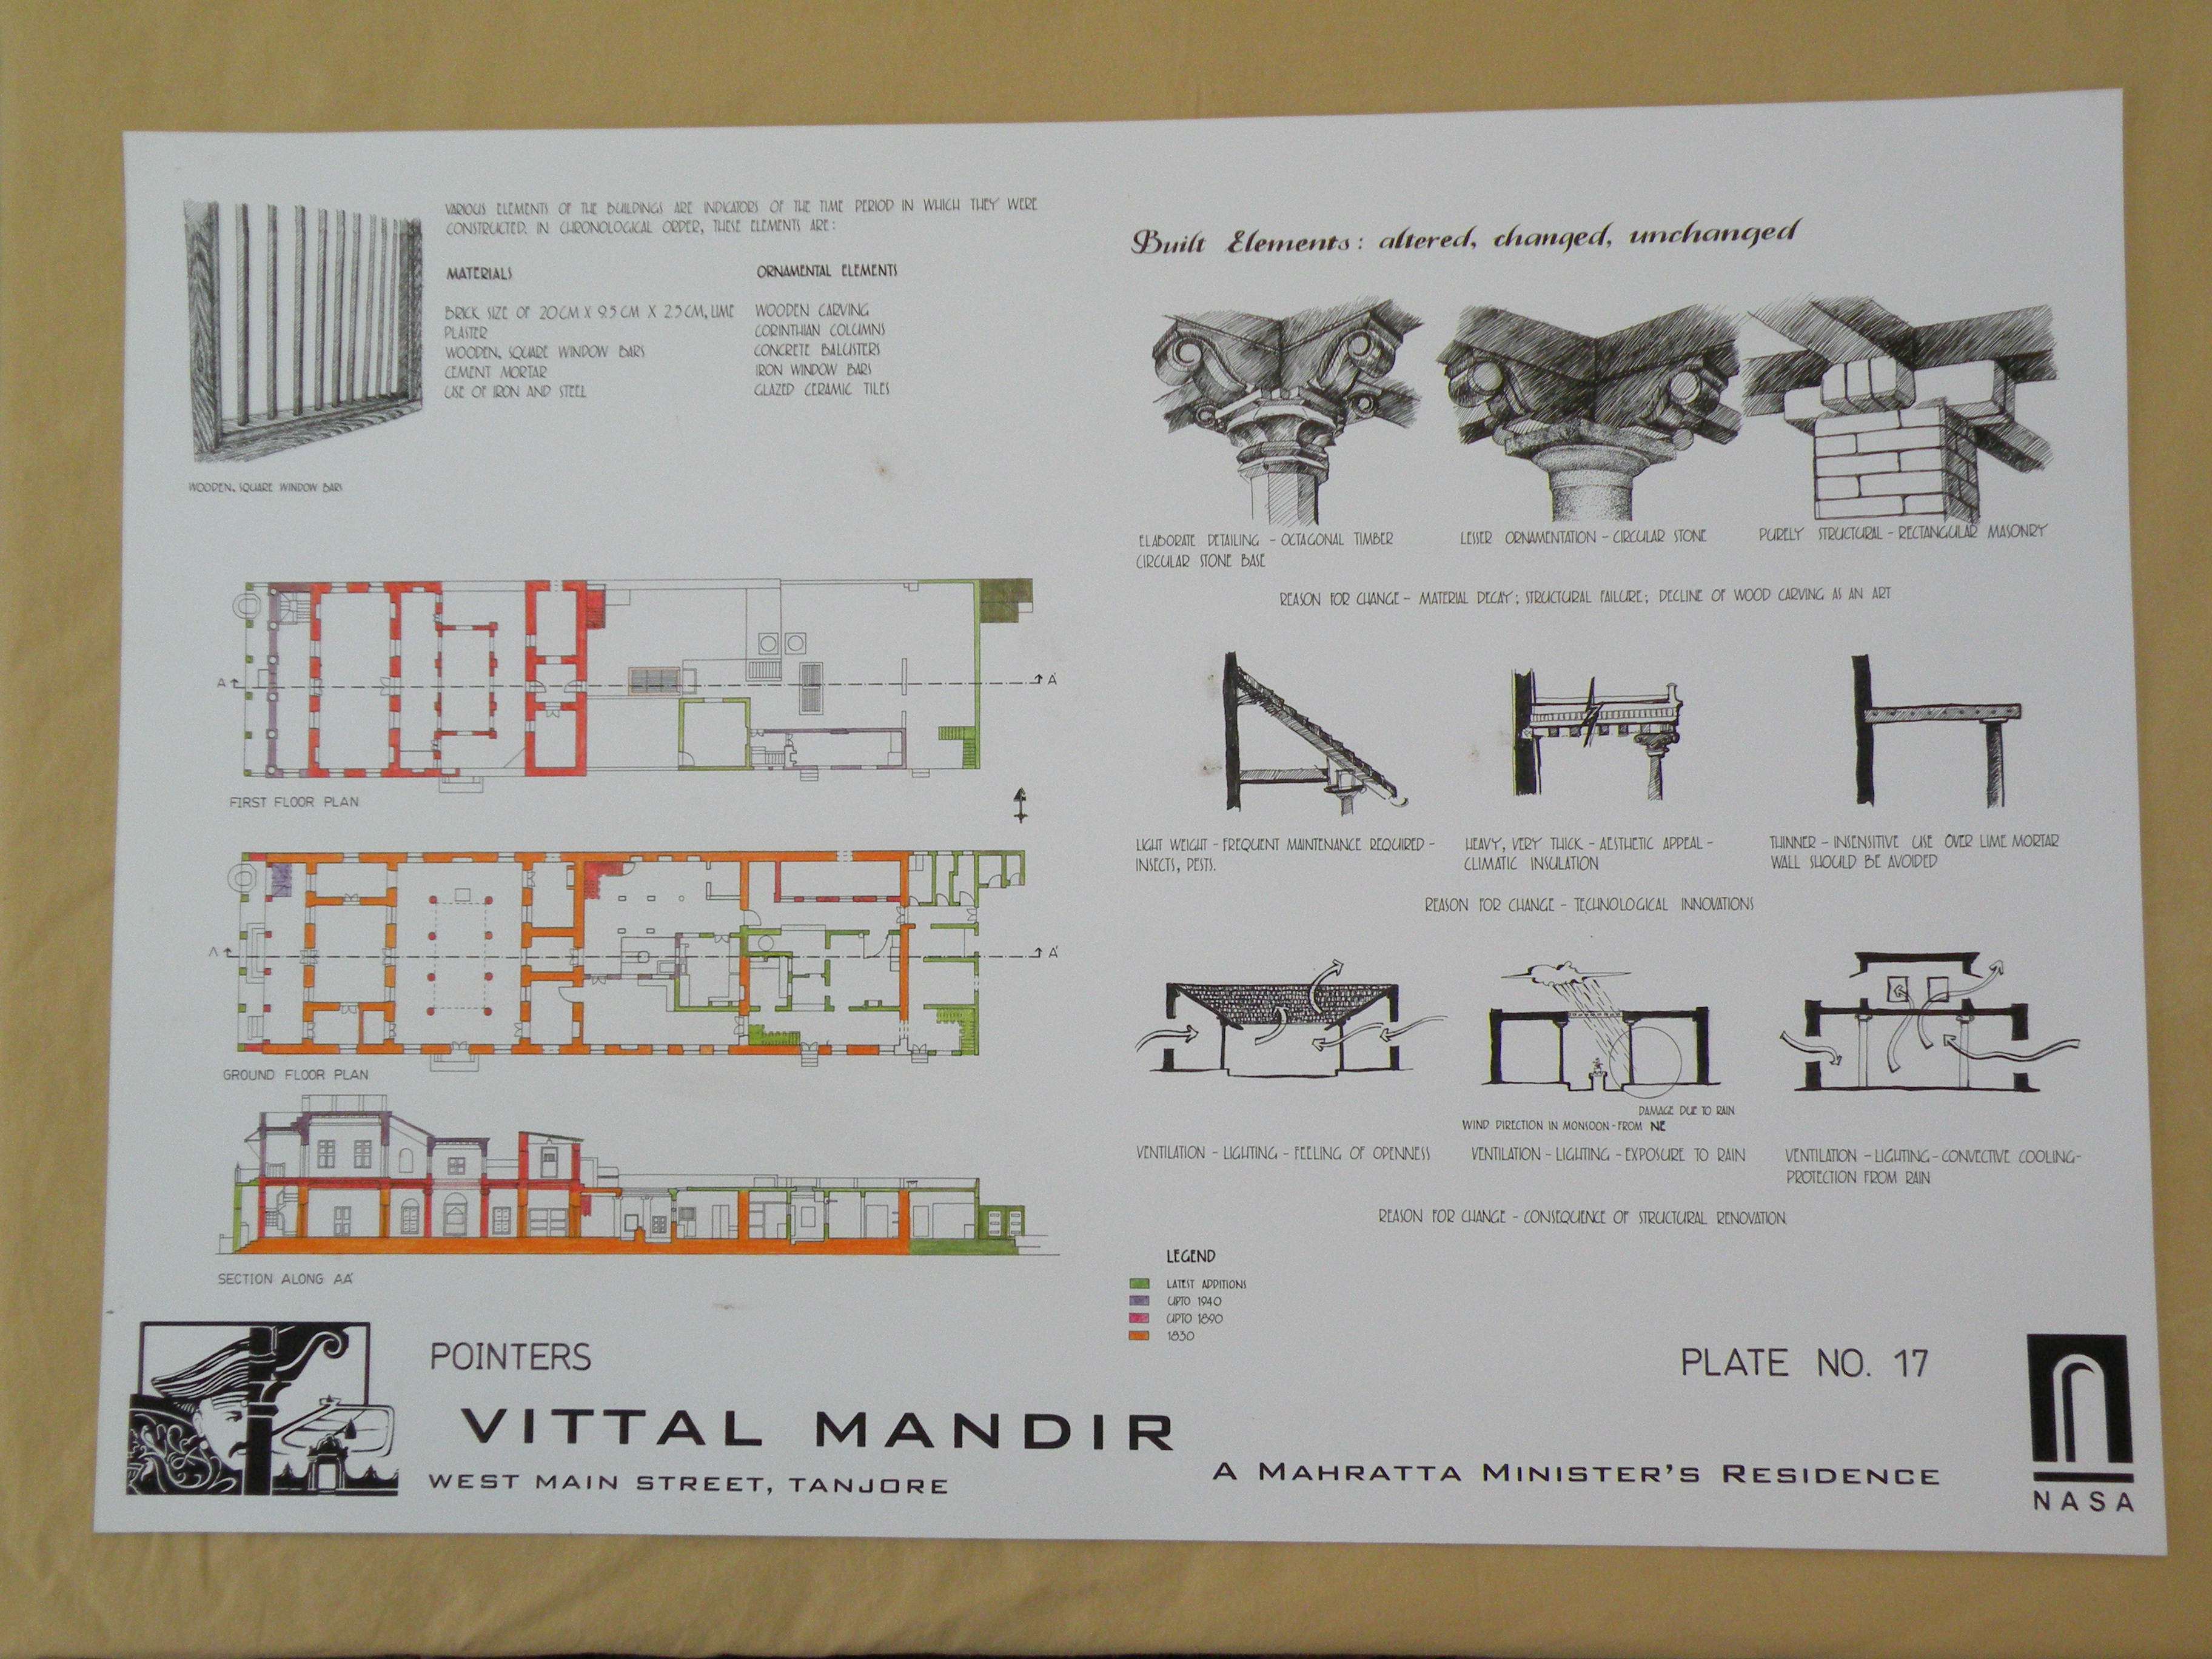 VARIOUS ELEMENTS OF THE BUILDINGS ARE INDICATORS OF THE TIME PERIOD IN WHICH THEY WERE
CONSTRUCTED. IN CHRONOLOGICAL ORDER, THESE ELEMENTS ARE:
MATERIALS
BRICK SIZE OF 20CM X 9.5CM X 2.5CM, LIME
PLASTER
WOODEN, SQUARE WINDOW BARS
CEMENT MORTAR
USE OF IRON AND STEEL
ORNAMENTAL ELEMENTS
WOODEN CARVING
CORINTHIAN COLUMNS
CONCRETE BALUSTERS
IRON WINDOW BARS
GLAZED CERAMIC TILES
WOODEN, SQUARE WINDOW BARS
A
A'
FIRST FLOOR PLAN
A
A'
GROUND FLOOR PLAN
SECTION ALONG AA'
Built Elements: altered, changed, unchanged
ELABORATE DETAILING - OCTAGONAL TIMBER
CIRCULAR STONE BASE
LESSER ORNAMENTATION - CIRCULAR STONE
PURELY STRUCTURAL - RECTANGULAR MASONRY
REASON FOR CHANGE - MATERIAL DECAY; STRUCTURAL FAILURE; DECLINE OF WOOD CARVING AS AN ART
LIGHT WEIGHT - FREQUENT MAINTENANCE REQUIRED -
INSECTS, PESTS.
HEAVY, VERY THICK - AESTHETIC APPEAL -
CLIMATIC INSULATION
THINNER - INSENSITIVE USE OVER LIME MORTAR
WALL SHOULD BE AVOIDED
REASON FOR CHANGE - TECHNOLOGICAL INNOVATIONS
DAMAGE DUE TO RAIN
WIND DIRECTION IN MONSOON - FROM NE
VENTILATION - LIGHTING - FEELING OF OPENNESS
VENTILATION - LIGHTING - EXPOSURE TO RAIN
VENTILATION - LIGHTING - CONVECTIVE COOLING -
PROTECTION FROM RAIN
REASON FOR CHANGE - CONSEQUENCE OF STRUCTURAL RENOVATION.
LEGEND
LATEST ADDITIONS
UPTO 1940
UPTO 1890
1830
POINTERS
VITTAL MANDIR
WEST MAIN STREET, TANJORE
A MAHRATTA MINISTER'S RESIDENCE
PLATE NO. 17
NASA